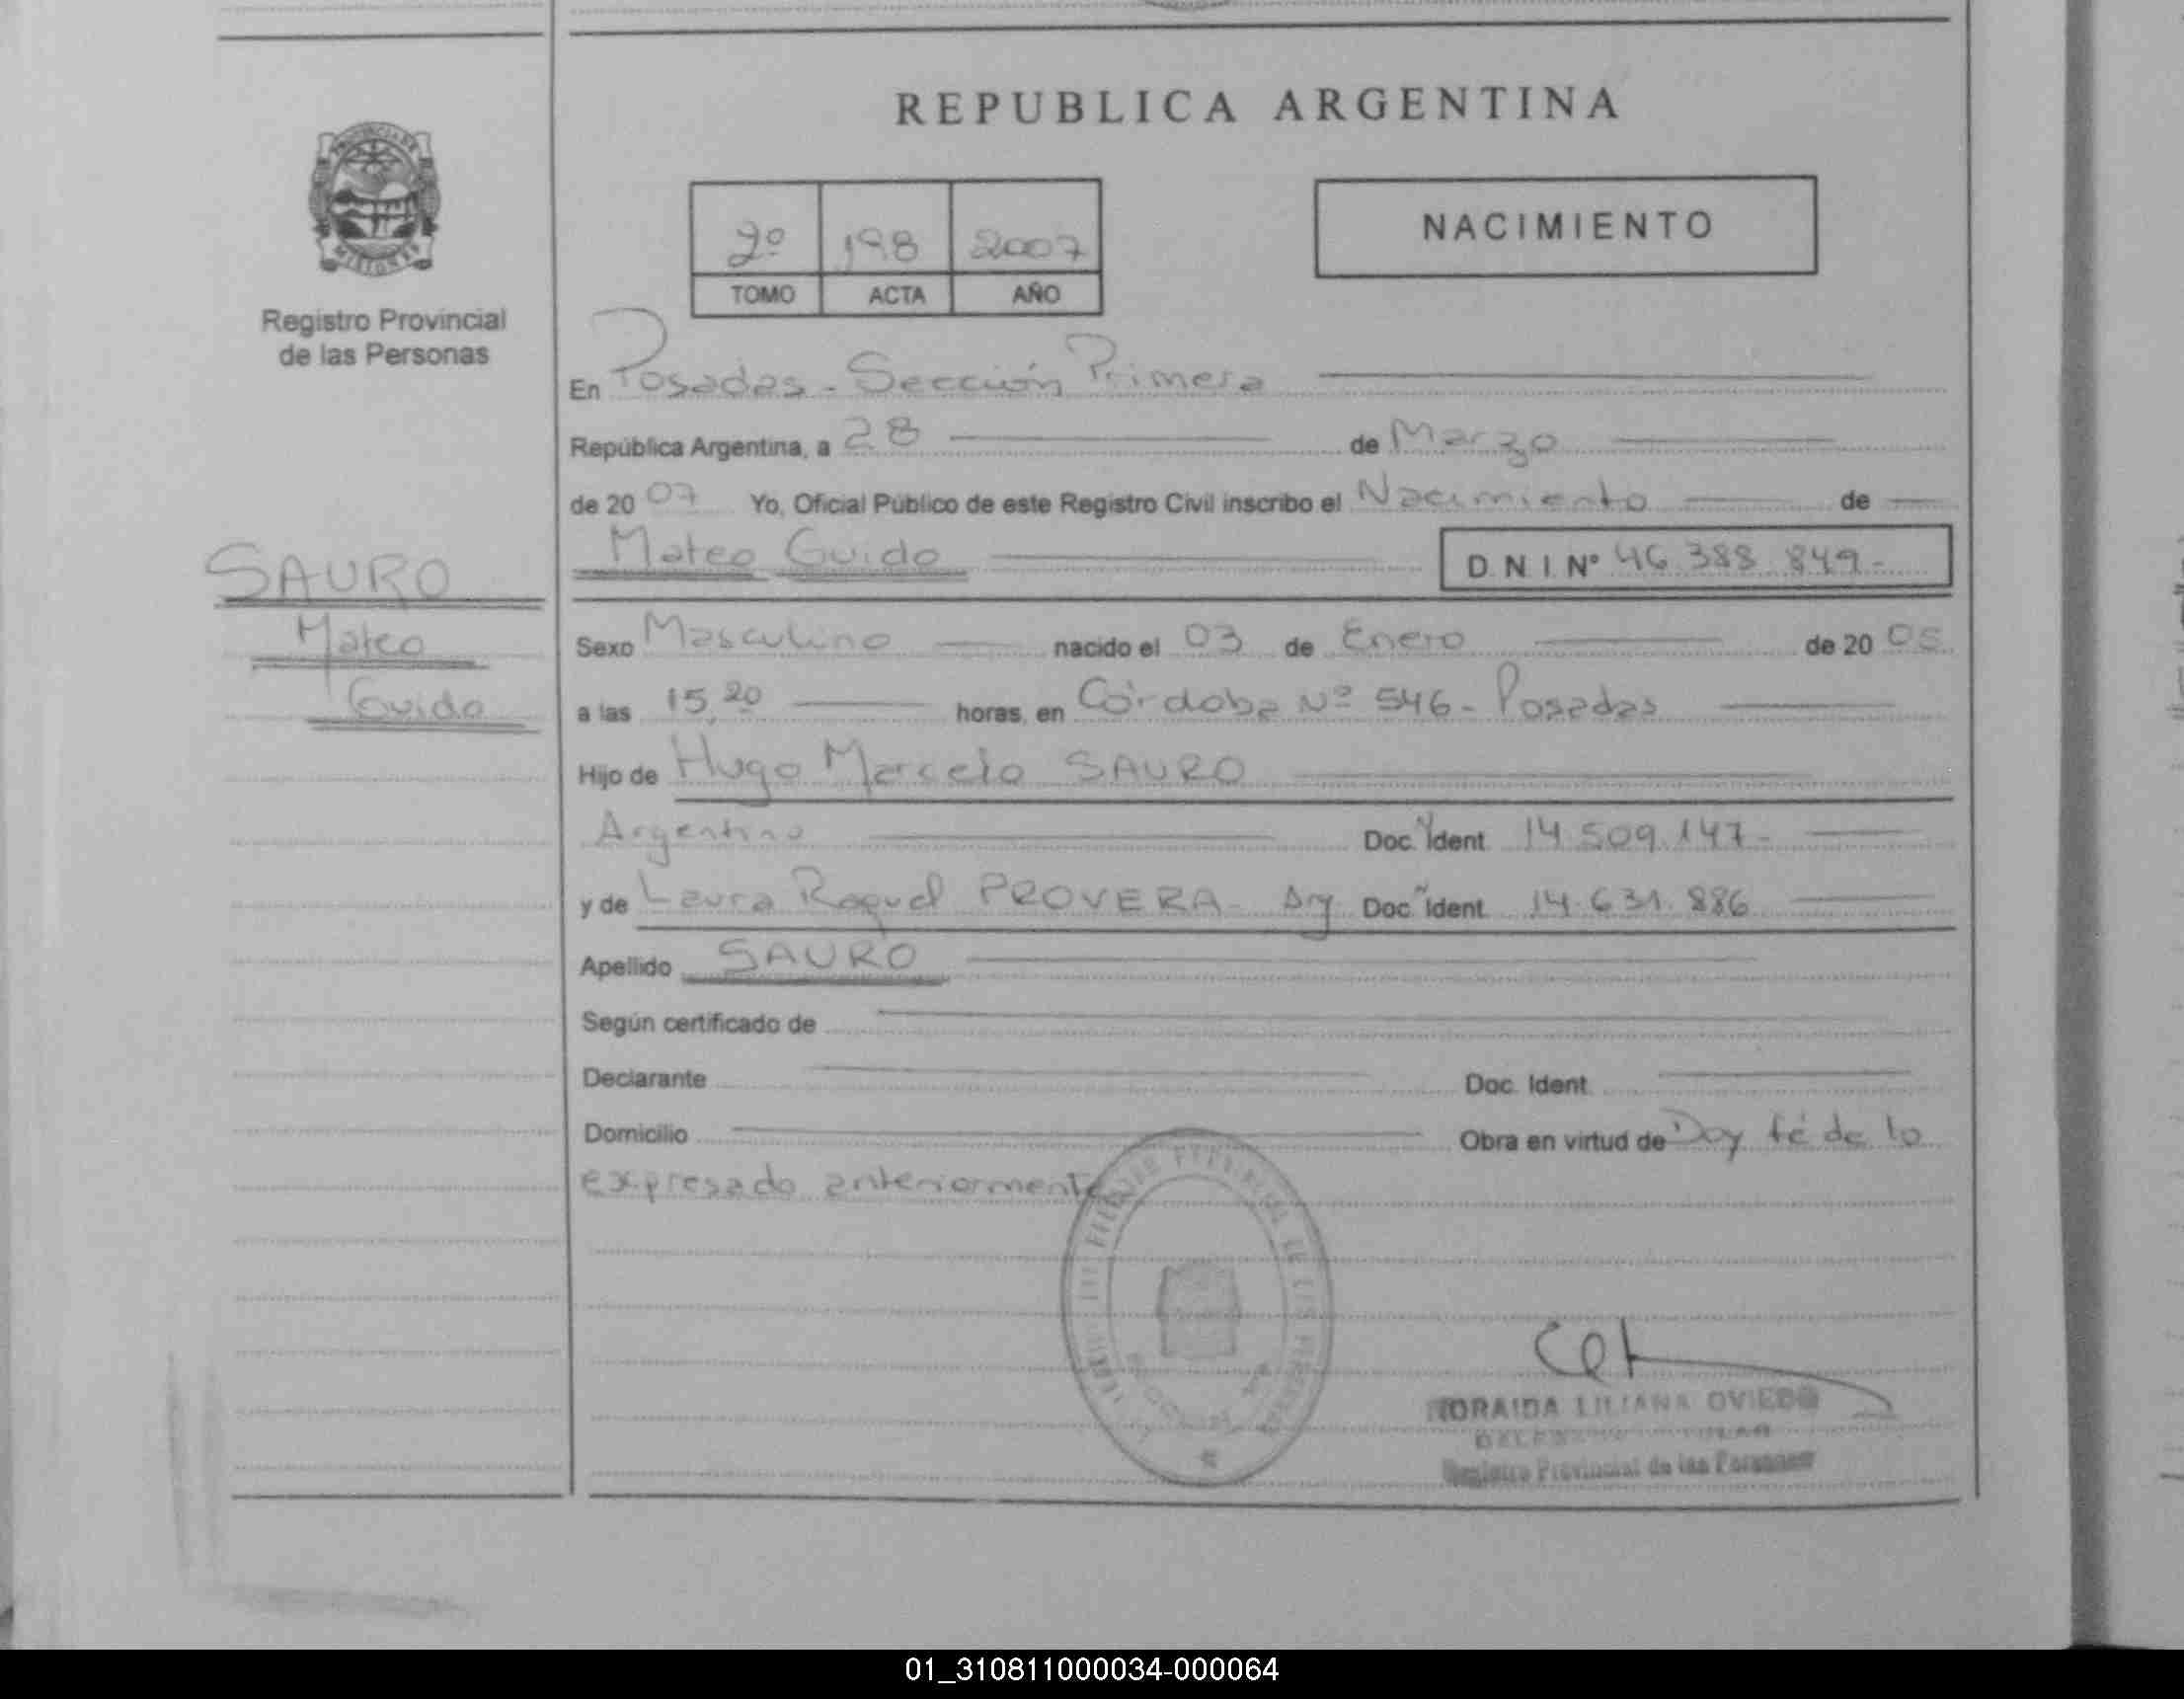 REPUBLICA ARGENTINA
PROVINCIA DE
MISIONES
Registro Provincial
de las Personas
2º 198 2007
TOMO ACTA AÑO
NACIMIENTO
En Posadas - Sección Primera
República Argentina, a 28 de Marzo
de 2007 Yo, Oficial Público de este Registro Civil inscribo el Nacimiento de
Mateo Guido D.N.I. Nº 46.388.849-
SAURO
Mateo
Guido
Sexo Masculino nacido el 03 de Enero de 20
a las 15,20 horas, en Córdoba Nº 546- Posadas
Hijo de Hugo Marcelo SAURO
Argentino Doc. Ident. 14.509.147-
y de Laura Raquel PROVERA- Arg Doc. Ident. 14.631.886
Apellido SAURO
Según certificado de
Declarante Doc. Ident.
Domicilio Obra en virtud de Doy fé de lo
expresado anteriormente
LILIANA OVIEDO
Registro Provincial de las Personas
01_310811000034-000064